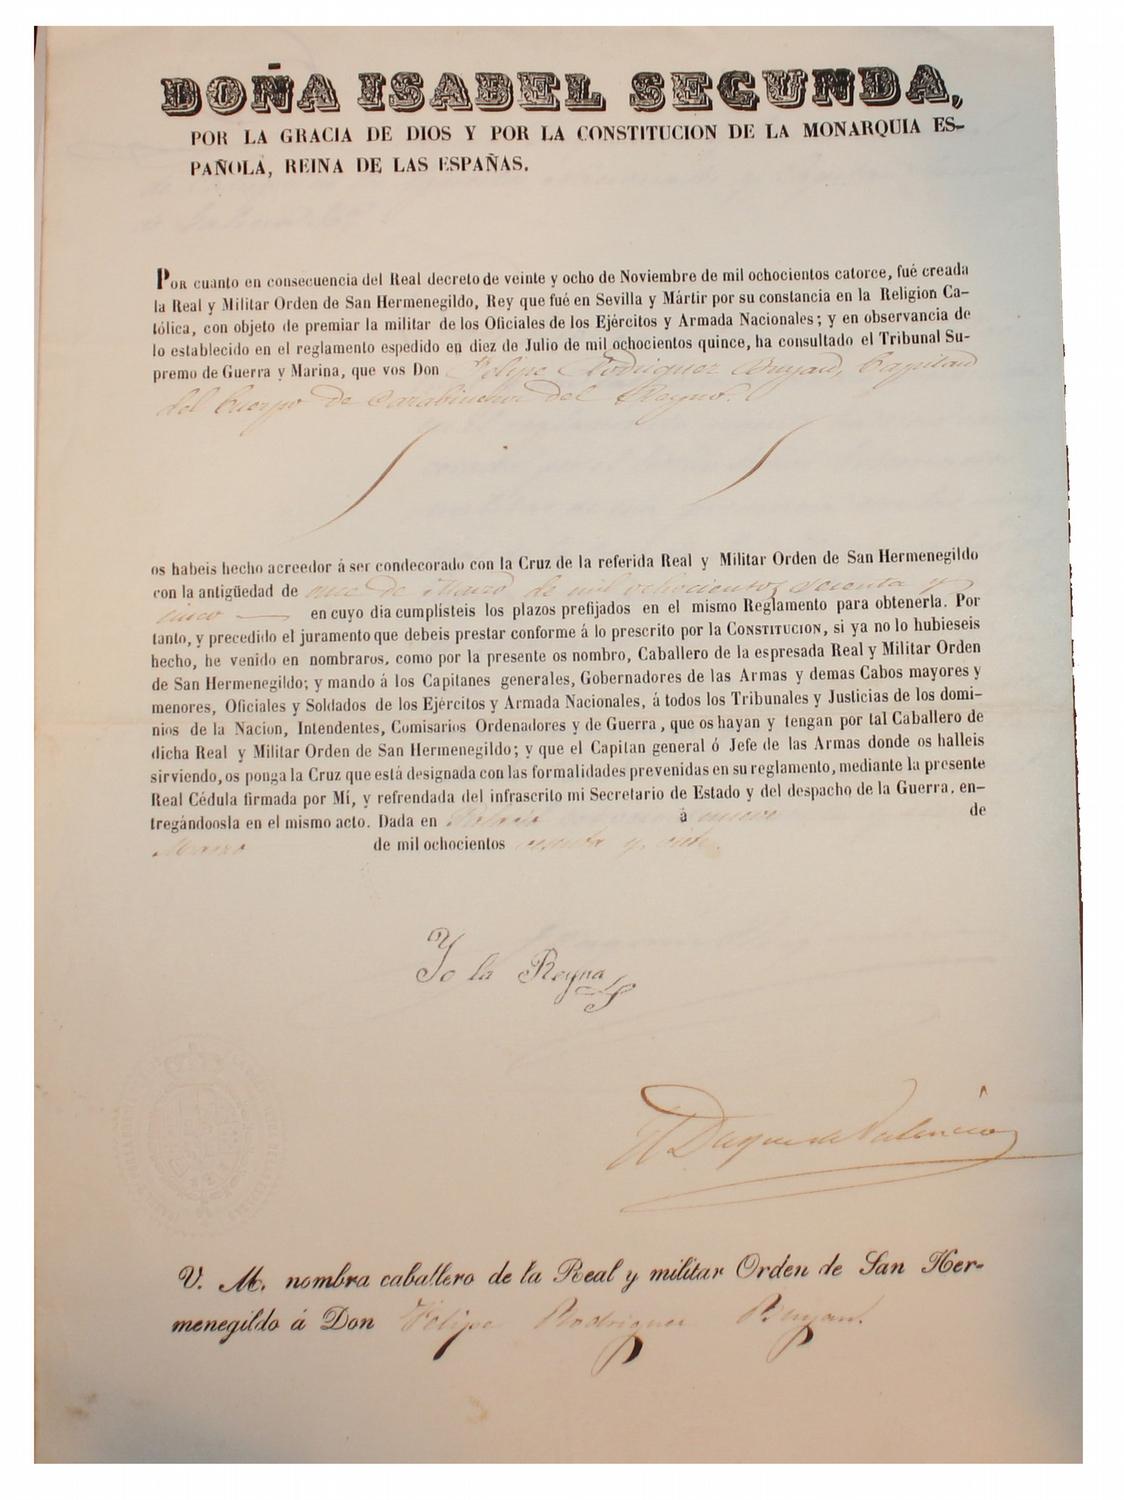 DOÑA ISABEL SEGUNDA,
POR LA GRACIA DE DIOS Y POR LA CONSTITUCION DE LA MONARQUIA ES-
PAÑOLA, REINA DE LAS ESPAÑAS.
POR cuanto en consecuencia del Real decreto de veinte y ocho de Noviembre de mil ochocientos catorce, fué creada
la Real y Militar Orden de San Hermenegildo, Rey que fué en Sevilla y Mártir por su constancia en la Religion Ca-
tólica, con objeto de premiar la militar de los Oficiales de los Ejércitos y Armada Nacionales; y en observancia de
lo establecido en el reglamento espedido en diez de Julio de mil ochocientos quince, ha consultado el Tribunal Su-
premo de Guerra y Marina, que vos Don Felipe Rodriguez Capitan
del Cuerpo de Carabineros del Reyno.
os habeis hecho acreedor á ser condecorado con la Cruz de la referida Real y Militar Orden de San Hermenegildo
con la antigüedad de once de Marzo de mil ochocientos sesenta y
cinco en cuyo dia cumplísteis los plazos prefijados en el mismo Reglamento para obtenerla. Por
tanto, y precedido el juramento que debeis prestar conforme á lo prescrito por la CONSTITUCION, si ya no lo hubieseis
hecho, he venido en nombraros, como por la presente os nombro, Caballero de la espresada Real y Militar Orden
de San Hermenegildo; y mando á los Capitanes generales, Gobernadores de las Armas y demas Cabos mayores y
menores, Oficiales y Soldados de los Ejércitos y Armada Nacionales, á todos los Tribunales y Justicias de los domi-
nios de la Nacion, Intendentes, Comisarios Ordenadores y de Guerra, que os hayan y tengan por tal Caballero de
dicha Real y Militar Orden de San Hermenegildo; y que el Capitan general ó Jefe de las Armas donde os halleis
sirviendo, os ponga la Cruz que está designada con las formalidades prevenidas en su reglamento, mediante la presente
Real Cédula firmada por Mí, y refrendada del infrascrito mi Secretario de Estado y del despacho de la Guerra, en-
tregándoosla en el mismo acto. Dada en Palacio á nueve de
Marzo de mil ochocientos sesenta y siete.
Yo la Reyna
El Duque de Valencia
V. M. nombra caballero de la Real y militar Orden de San Her-
menegildo á Don Felipe Rodriguez